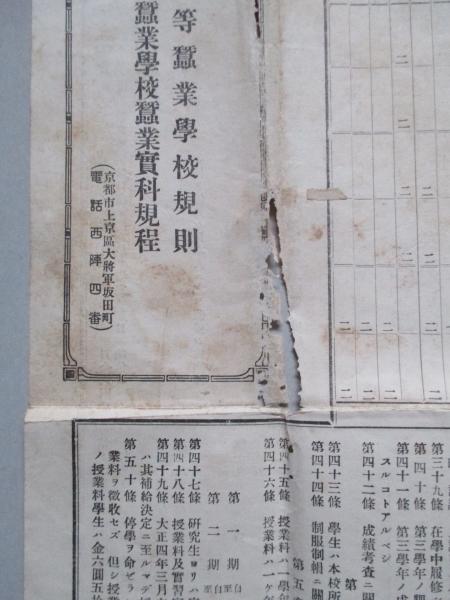 等蠶業學校規則
蠶業學校蠶業實科規程
(京都市上京區大將軍坂田町
電話西陣四番)
二
二
二
二
二
二
二
二
二
二
二
第三十九條 在學中履修
第四十條 第三學年ノ
第四十一條 第三學年ノ成
スルコトアルベシ
第四十二條 成績考査ニ關
第
第四十三條 學生ハ本校所
第四十四條 制服制帽ニ關
第五
第四十五條 授業料ハ一學年
第四十六條 授業料ハ一ケ年
第一期 自至
第二期 自至
第四十七條 硏究生ヨリハ
第四十八條 授業料及實習
第四十九條 大正四年三月
ハ其補給決定ニ至ルマデ
第五十條 停學ヲ命ゼラ
業料ヲ徵收セズ 但シ授業
ノ授業料學生ハ金六圓五拾